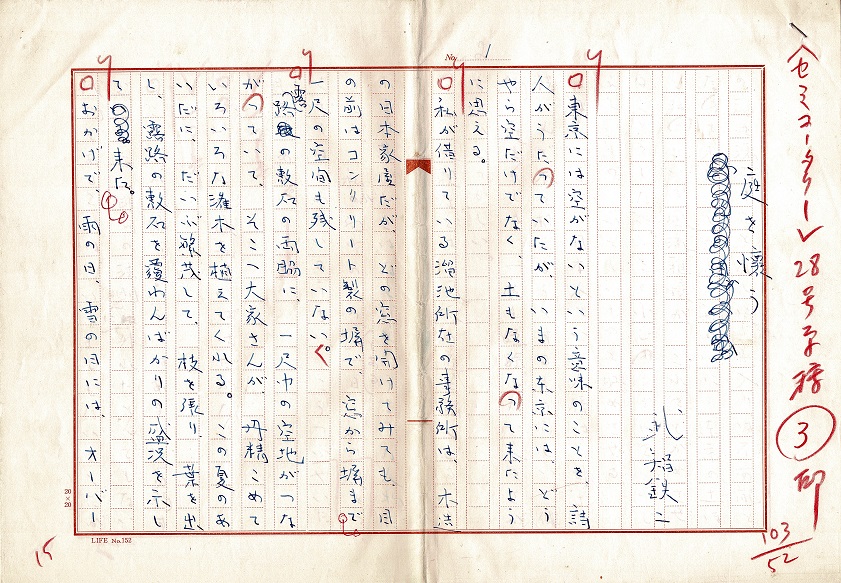 〈セミコータリー〉28号原稿 ③ 印
103/52
No. 1
庭を懐う
鉄二
東京には空がないという意味のことを、詩
人がうたっていたが、いまの東京には、どう
やら空だけでなく、土もなくなって来たよう
に思える。
私が借りている溜池所在の事務所は、木造
の日本家屋だが、どの窓を開けてみても、目
の前はコンクリート製の塀で、窓から塀まで
一尺の空間も残していない。
露路の敷石の両脇に、一尺巾の空地がつな
がっていて、そこへ大家さんが、丹精こめて
いろいろな灌木を植えてくれる。この夏のあ
いだに、だいぶ繁茂して、枝を張り、葉を出
し、露路の敷石を覆わんばかりの盛況を示し
て来た。
おかげで、雨の日、雪の日には、オーバー
20×20
LIFE No.152
15